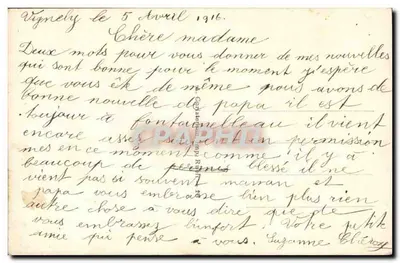 Vignely le 5 Avril 1916.
Chère madame
Deux mots pour vous donner de mes nouvelles
qui sont bonne pour le moment j'espère
que vous êt de même nous avons de
bonne nouvelle de papa il est
toujour à fontainebleau il vient
encore assez souvent en permission
mes en ce moment comme il y à
beaucoup de blessé il ne
vient pas si souvent maman et
papa vous embrasse bien plus rien
autre chose à vous dire que de
vous embrassez bien fort. Votre petite
amie qui pense à vous. Suzanne
CPARAMA